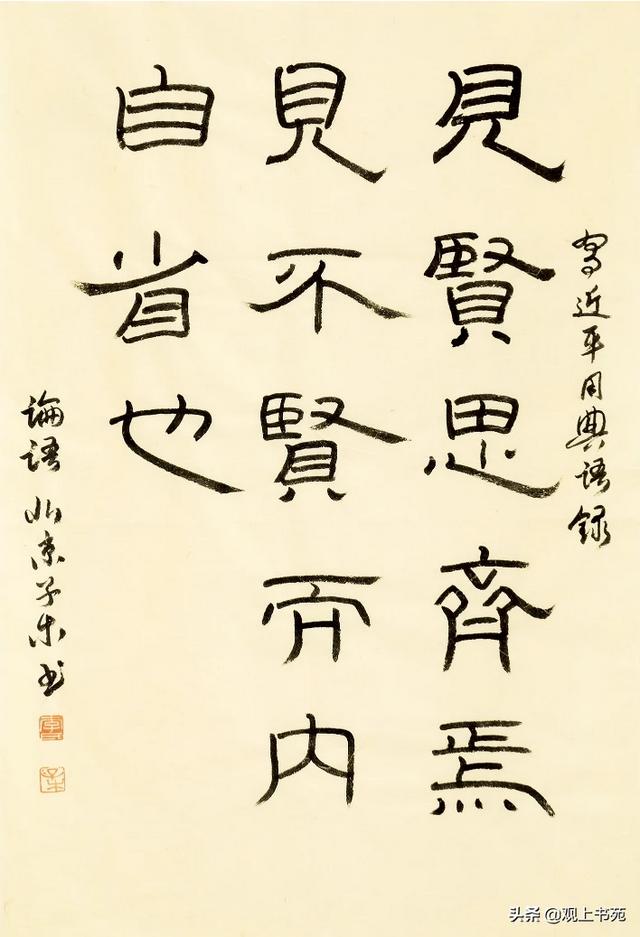 寫近平用典語録
見賢思齊焉
見不賢而内
自省也
論語 北京子 书
头条 @观上书苑